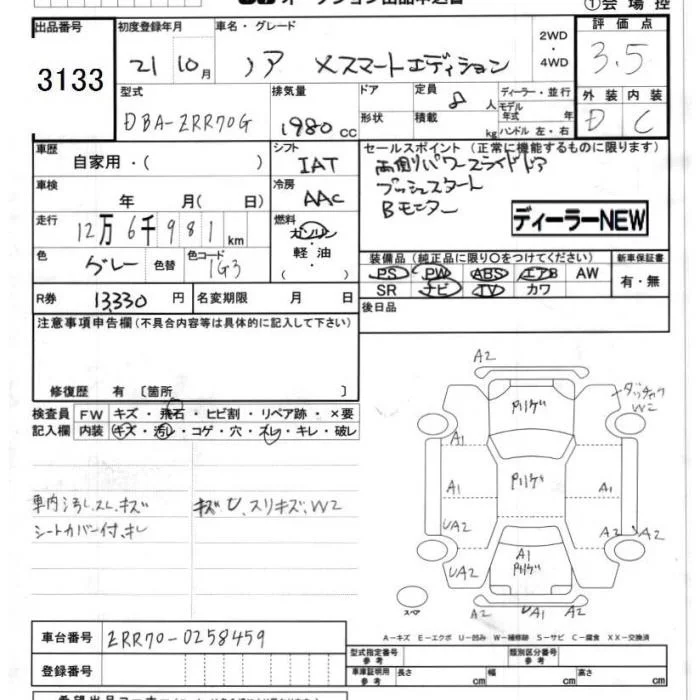 オークション出品申込書
①会場控
出品番号
3133
初度登録年月
21 10月
車名・グレード
ノア Xスマートエディション
2WD
・
4WD
評価点
3.5
型式
DBA-ZRR70G
排気量
1980 cc
ドア
形状
定員 8 人
積載 kg
ディーラー・並行
モデル年式 年
ハンドル 左・右
外装 内装
D C
車歴
自家用・( )
シフト
IAT
セールスポイント(正常に機能するものに限ります)
両側パワースライドドア
プッシュスタート
Bモニター
ディーラーNEW
車検
年 月( 日)
冷房
AAC
走行
12万6千981km
燃料
ガソリン
軽油
・( )
色
グレー
色替
色コード
1G3
装備品(純正品に限り○をつけてください)
PS PW ABS エアB AW
SR ナビ TV カワ
新車保証書
有・無
R券 13,330 円
名変期限 月 日
後日品
注意事項申告欄(不具合内容等は具体的に記入して下さい)
修復歴 有〔箇所 〕
検査員記入欄
FW キズ・飛石・ヒビ割・リペア跡・×要
内装 キズ・汚レ・コゲ・穴・スレ・キレ・破レ
車内汚レ.スレ.キズ
シートカバー付.キレ
キズU.スリキズ.W2
A2
W2
A1
A1
A1
UA2
A2
A2
UA2
A1
A2
UA2
UA2
スペア
A-キズ E-エクボ U-凹み W-補修跡 S-サビ C-腐食 XX-交換済
車台番号
ZRR70-0258459
登録番号
型式指定番号
参考
類別区分番号
参考
車庫証明用
参考
長さ cm
幅 cm
高さ cm